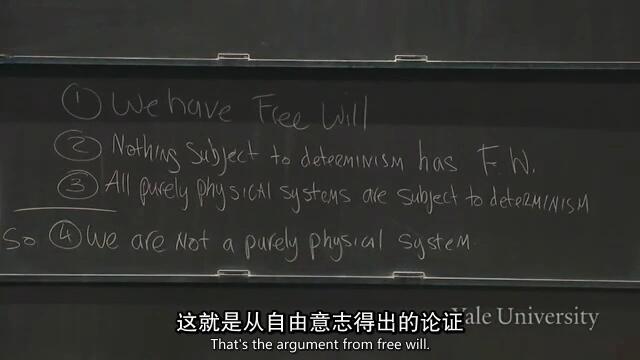 ① We have Free Will
② Nothing subject to determinism has F.W.
③ All purely physical systems are subject to determinism
So ④ We are not a purely physical system.
这就是从自由意志得出的论证
Yale University
That's the argument from free will.